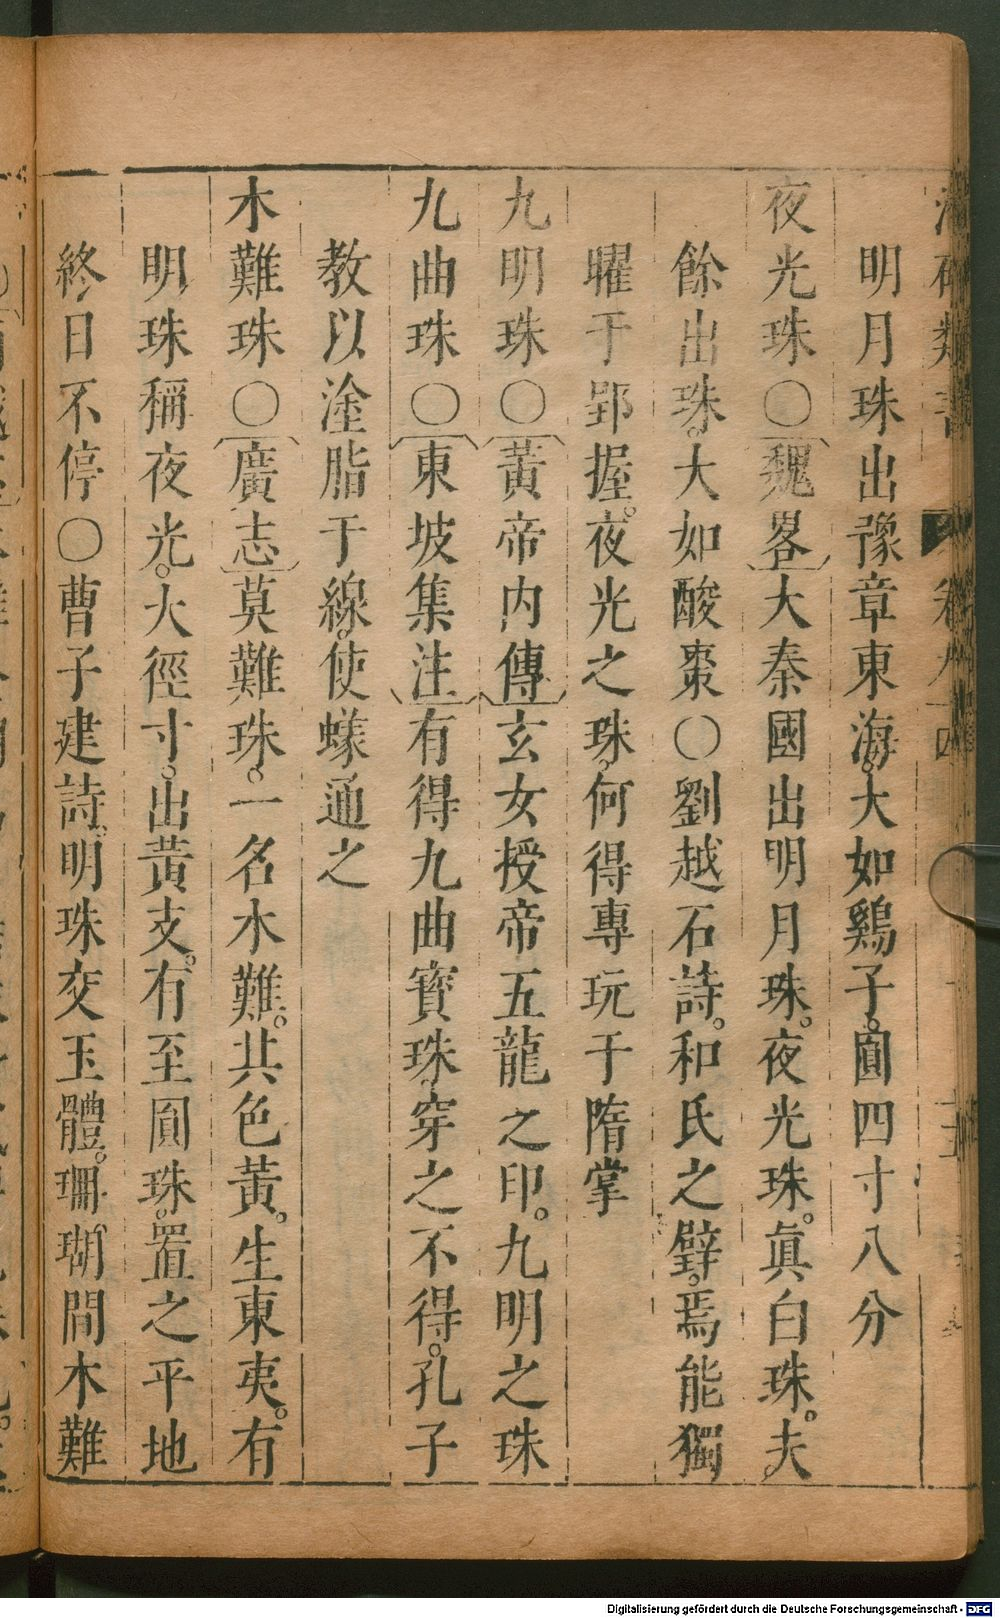 明月珠出豫章東海。大如鷄子。圓四寸八分
夜光珠○魏畧大秦國出明月珠。夜光珠。眞白珠。夫
餘出珠。大如酸棗○劉越石詩。和氏之璧。焉能獨
曜于郢握。夜光之珠。何得專玩于隋掌
九明珠○黃帝内傳玄女授帝五龍之印。九明之珠
九曲珠○東坡集注有得九曲寶珠。穿之不得。孔子
教以塗脂于線。使蟻通之
木難珠○廣志莫難珠。一名木難。其色黃。生東夷。有
明珠稱夜光。大徑寸。出黃支。有至圓珠。置之平地
終日不停○曹子建詩。明珠交玉體。珊瑚間木難
Digitalisierung gefördert durch die Deutsche Forschungsgemeinschaft - DFG